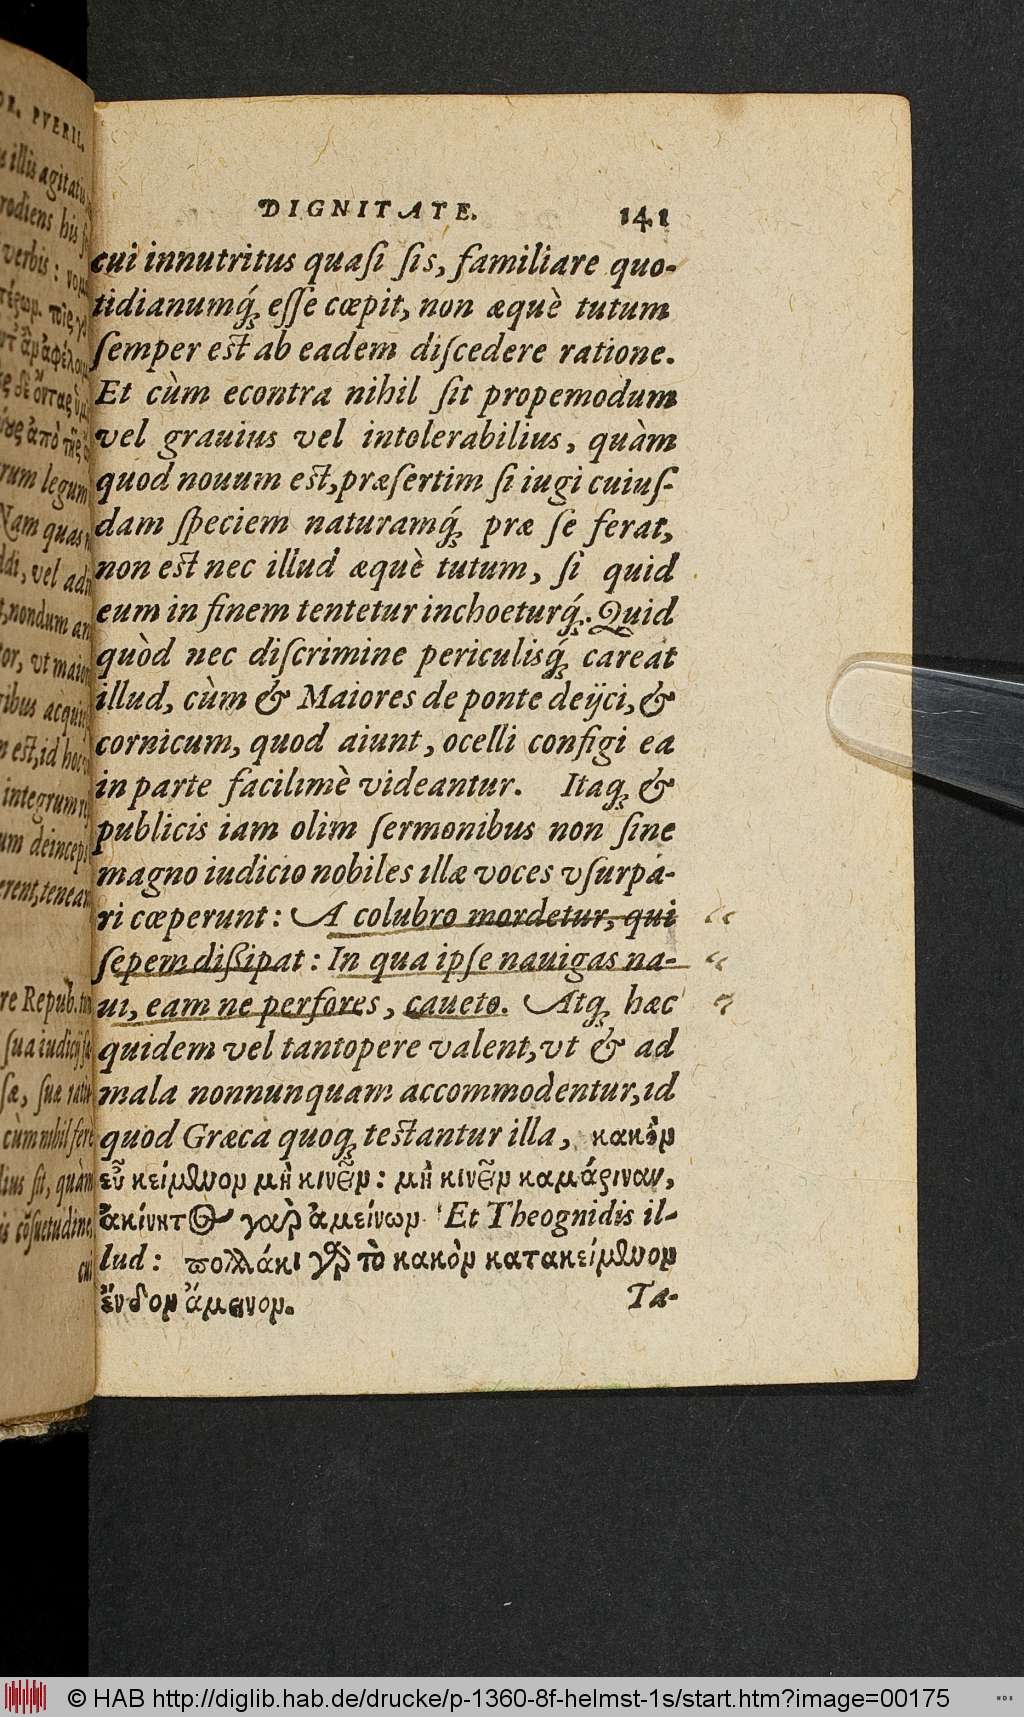 DIGNITATE. 141
cui innutritus quaſi ſis, familiare quo-
tidianumq́ꝫ eſſe cœpit, non æquè tutum
ſemper est ab eadem diſcedere ratione.
Et cùm econtra nihil ſit propemodùm
vel grauius vel intolerabilius, quàm
quod nouum est, præſertim ſi iugi cuiuſ-
dam ſpeciem naturamq́ꝫ præ ſe ferat,
non est nec illud æquè tutum, ſi quid
eum in finem tentetur inchoeturq́ꝫ. Quid
quòd nec diſcrimine periculisq́ꝫ careat
illud, cùm & Maiores de ponte deijci, &
cornicum, quod aiunt, ocelli configi ea
in parte facilimè videantur. Itaqꝫ &
publicis iam olim ſermonibus non ſine
magno iudicio nobiles illæ voces vſurpá-
ri cœperunt: A colubro mordetur, qui
ſepem dißipat: In qua ipſe nauigas na-
ui, eam ne perfores, caueto. Atqꝫ hæc
quidem vel tantopere valent, vt & ad
mala nonnunquam accommodentur, id
quod Græca quoqꝫ testantur illa, κακὸν
εὖ κείμενον μὴ κινεῖν: μὴ κινεῖν καμάριναν,
ἀκίνητος γαρ ἀμείνων Et Theognidis il-
lud: πολλάκι γὰρ τὸ κακὸν κατακείμενον
ἔνδον ἄμεινον. Ta-
OR. PVERIL.
illis agitatis
verbis:
rum legum
Nam quas
vel
nondum
vt maior
ribus acqui
est, id hoc
integrum
um deincep
erent, tenean
re Repub.
ſua iudicij
ſuæ ratio
cùm nihil fere
lius ſit, quàm
is cõſuetudine,
cui
© HAB http://diglib.hab.de/drucke/p-1360-8f-helmst-1s/start.htm?image=00175